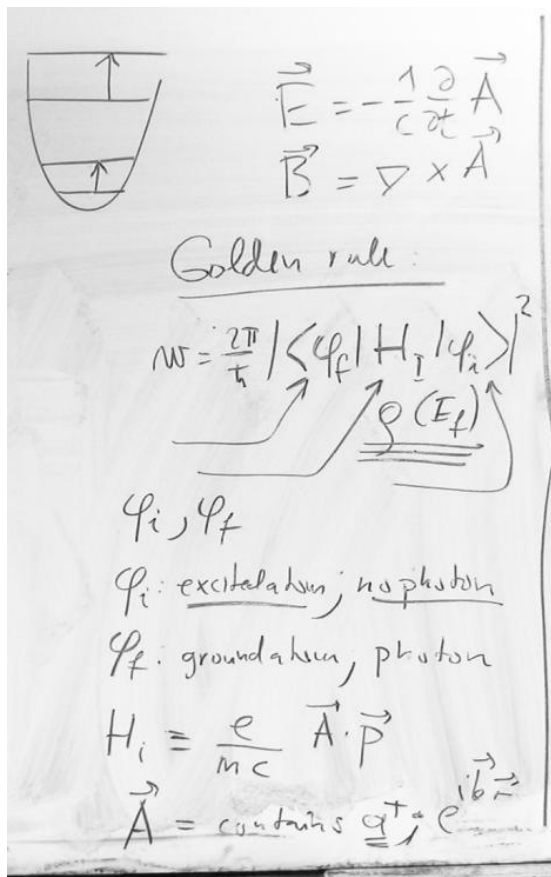 E⃗ = - 1/c ∂/∂t A⃗
B⃗ = ∇ × A⃗
Golden rule:
w = 2π/ħ |⟨φ_f| H_I |φ_i⟩|²
ρ(E_f)
φ_i, φ_f
φ_i: excited atom; no photon
φ_f: ground atom, photon
H_i ≡ e/mc A⃗·p⃗
A⃗ = contains a⁺; e^i